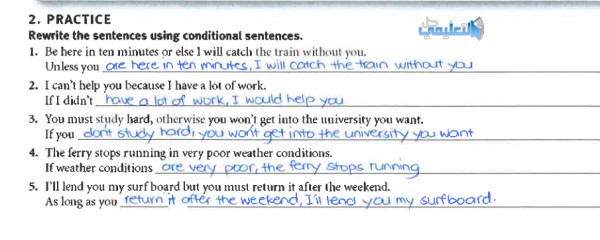 2. PRACTICE
Rewrite the sentences using conditional sentences.
1. Be here in ten minutes or else I will catch the train without you.
Unless you are here in ten minutes, I will catch the train without you
2. I can't help you because I have a lot of work.
If I didn't have a lot of work, I would help you
3. You must study hard, otherwise you won't get into the university you want.
If you don't study hard, you won't get into the university you want
4. The ferry stops running in very poor weather conditions.
If weather conditions are very poor, the ferry stops running
5. I'll lend you my surf board but you must return it after the weekend.
As long as you return it after the weekend, I'll lend you my surfboard.